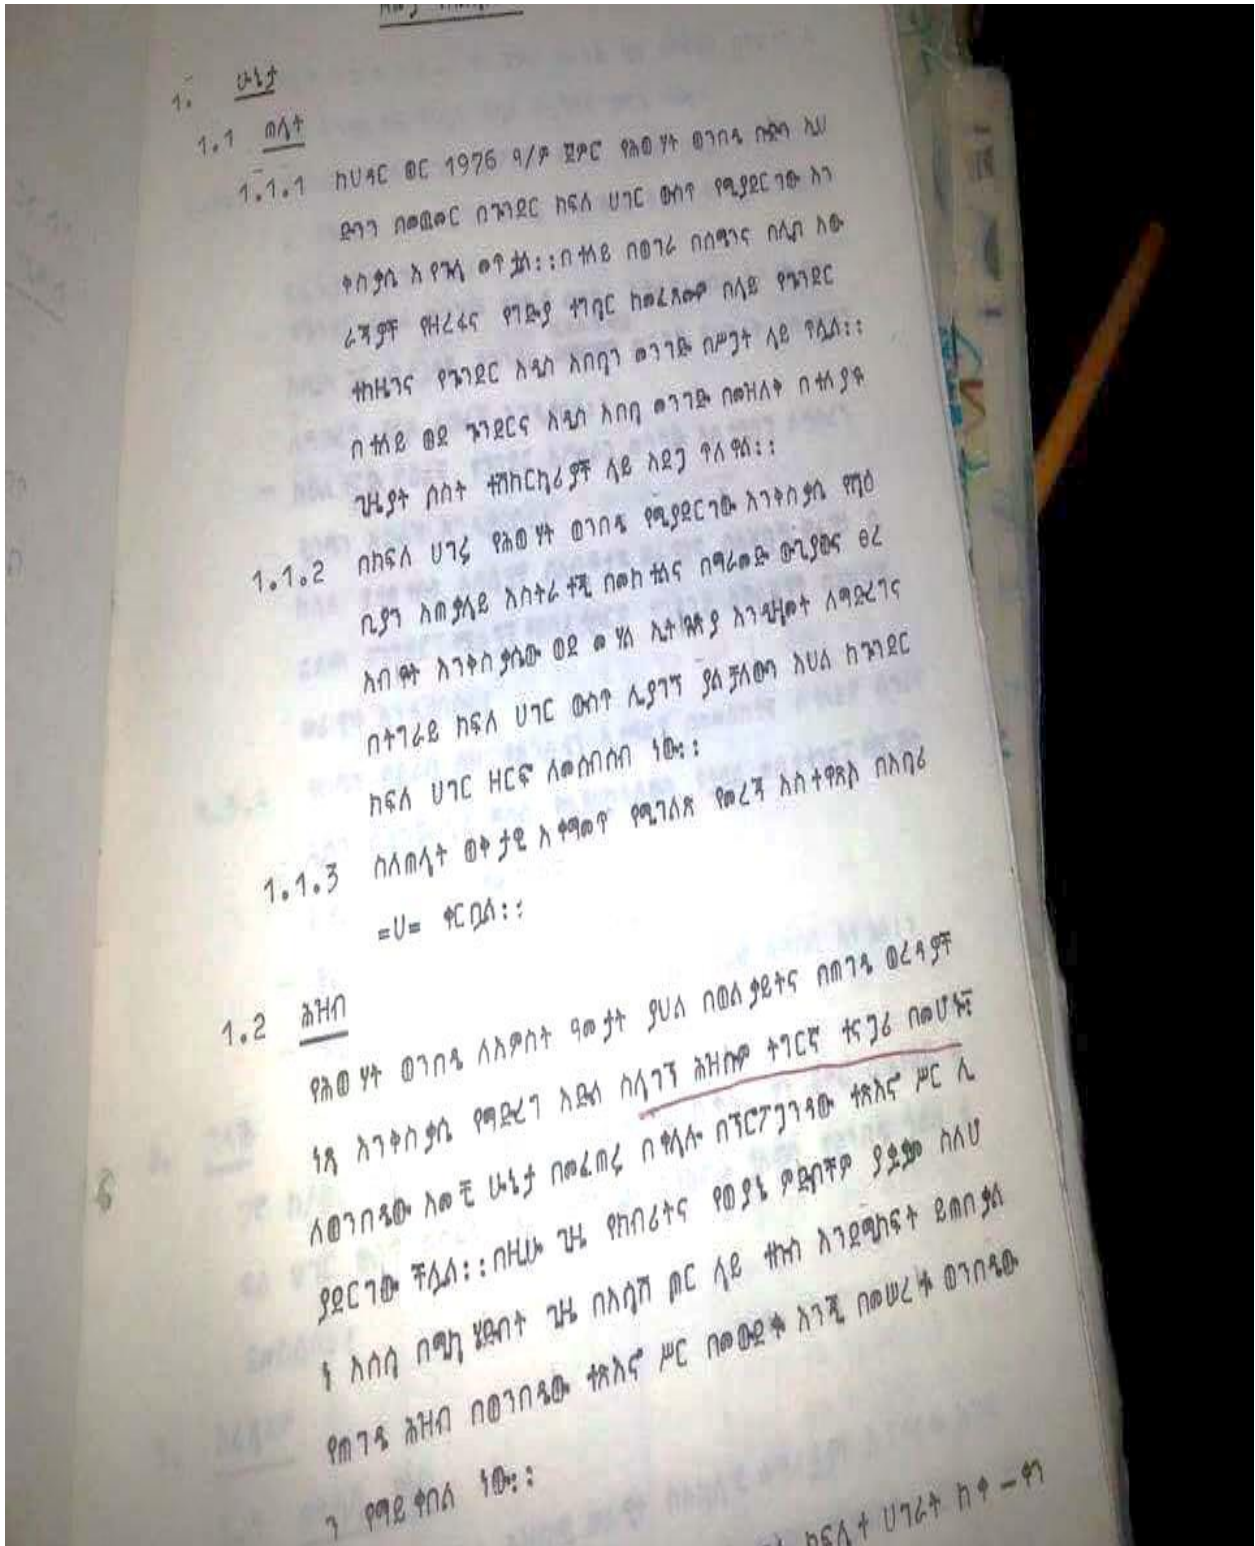 1. ሁኔታ
1.1 ጠላት
1.1.1 ከህዳር ወር 1976 ዓ/ም ጀምር የሕወሃት ወንበዴ ቡድን ኢህ
ድንን በመጨመር በጐንደር ክፍለ ሀገር ውስጥ የሚያደርገው እን
ቅስቃሴ እየጐላ መጥቷል፡፡በተለይ በወገራ በስሜንና በሊቦ አው
ራጃዎች የዘረፋና የግድያ ተግባር ከመፈጸሙም በላይ የጐንደር
ተከዜንና የጐንደር አዲስ አበባን መንገድ በሥጋት ላይ ጥሏል፡፡
በተለይ ወደ ጐንደርና አዲስ አበባ መንገድ በመዝለቅ በተለያዩ
ጊዜያት ሶስት ተሽከርካሪዎች ላይ አደጋ ጥለዋል፡፡
1.1.2 በክፍለ ሀገሩ የሕወሃት ወንበዴ የሚያደርገው እንቅስቃሴ የሻዕ
ቢያን አጠቃላይ እስትራተጂ በመከተልና በማራመድ ውጊያውና ፀረ
አብዮት እንቅስቃሴው ወደ መሃል ኢትዮጵያ እንዲዛመት ለማድረግና
በትግራይ ክፍለ ሀገር ውስጥ ሊያገኝ ያልቻለውን እህል ከጐንደር
ክፍለ ሀገር ዘርፎ ለመሰብሰብ ነው፡፡
1.1.3 ስለጠላት ወቅታዊ አቀማመጥ የሚገልጽ የመረጃ አስተዋጽኦ በአባሪ
=ሀ= ቀርቧል፡፡
1.2 ሕዝብ
የሕወሃት ወንበዴ ለአምስት ዓመታት ያህል በወልቃይትና በጠገዴ ወረዳዎች
ነጻ እንቅስቃሴ የማድረግ እድል ስላገኘ ሕዝቡም ትግርኛ ተናጋሪ በመሆኑ
ለወንበዴው አመቺ ሁኔታ በመፈጠሩ በቀላሉ በፕሮፖጋንዳው ተጽእኖ ሥር ሊ
ያደርገው ችሏል፡፡በዚሁ ጊዜ የከብሪትና የወያኔ ምድቦችም ያዳም ስለሆ
ነ አሰሳ በሚካሄድበት ጊዜ በአሳሽ ጦር ላይ ተኩስ እንደሚከፍት ይጠበቃል
የጠገዴ ሕዝብ በወንበዴው ተጽእኖ ሥር በመውደቁ እንጂ በመሠረቱ ወንበዴው
ን የማይቀበል ነው፡፡
ክፍላተ ሀገራት ከቀ–ቀን